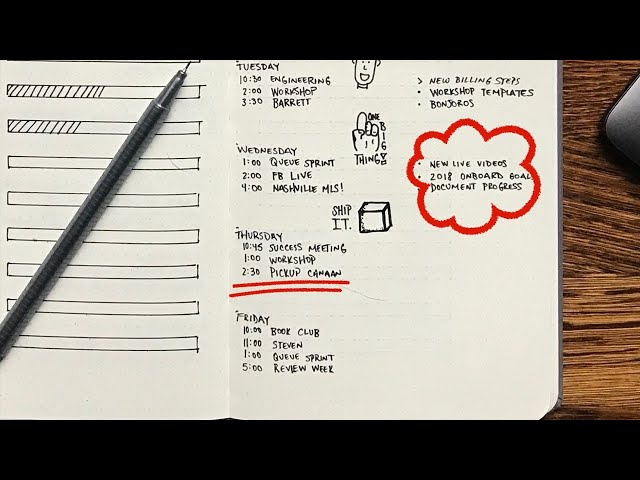 TUESDAY
10:30 ENGINEERING
2:00 WORKSHOP
3:30 BARRETT
> NEW BILLING STEPS
• WORKSHOP TEMPLATES
• BONJOROS
ONE
BIG
THING!
WEDNESDAY
1:00 QUEUE SPRINT
2:00 FB LIVE
4:00 NASHVILLE MLS!
• NEW LIVE VIDEOS
• 2018 ONBOARD GOAL
DOCUMENT PROGRESS
SHIP
IT.
THURSDAY
10:45 SUCCESS MEETING
1:00 WORKSHOP
2:30 PICKUP CANAAN
FRIDAY
10:00 BOOK CLUB
11:00 STEVEN
1:00 QUEUE SPRINT
5:00 REVIEW WEEK